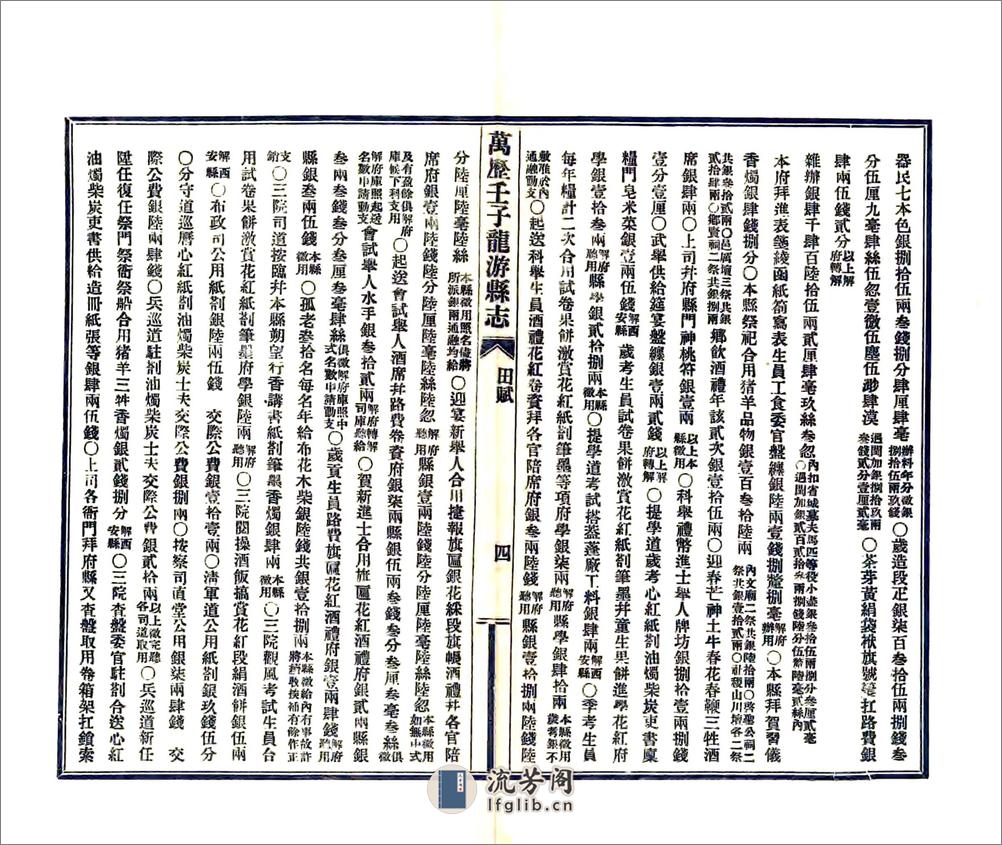 器民七本色銀捌拾伍兩叁錢捌分肆厘肆毫辦料年分徵銀捌拾伍兩玖錢〇歲造段疋銀柒百叁拾伍兩捌錢叁
分伍厘九毫肆絲伍忽壹微伍塵伍渺肆漠遇閏加銀捌拾玖兩叁錢貳分壹厘貳毫〇茶芽黃絹袋袱旗號簍扛路費銀
肆兩伍錢貳分以上解府轉解
雜辦銀肆千肆百陸拾伍兩貳厘肆毫玖絲叁忽
本府拜進表箋綾函紙箚寫表生員工食委官盤纏銀陸兩壹錢捌釐捌毫解府辦用〇本縣拜賀習儀
香燭銀肆錢捌分〇本縣祭祀合用猪羊品物銀壹百叁拾陸兩內文廟二祭共銀陸拾兩〇啓聖公祠二祭共銀壹拾貳兩〇社稷山川壇各二祭
共銀叁拾貳兩〇邑厲壇三祭共銀貳拾肆兩〇鄉賢祠二祭共銀捌兩鄉飲酒禮年該貳次銀壹拾伍兩〇迎春芒神土牛春花春鞭三牲酒
席銀肆兩〇上司幷府縣門神桃符銀壹兩以上本縣徵用〇科舉禮幣進士舉人牌坊銀捌拾壹兩捌錢
壹分壹厘〇武舉供給筵宴盤纏銀壹兩貳錢以上解府轉解〇提學道歲考心紅紙箚油燭柴炭吏書廩
糧門皂米菜銀壹兩伍錢解西安縣歲考生員試卷果餅激賞花紅紙箚筆墨幷童生果餅進學花紅府
學銀壹拾叁兩解府聽用縣學銀貳拾捌兩本縣徵用〇提學道考試搭蓋蓬廠工料銀肆兩解西安縣〇季考生員
每年糧計二次合用試卷果餅激賞花紅紙箚筆墨等項府學銀柒兩解府聽用縣學銀肆拾兩本縣徵用歲考銀不
敷准於內通融動支〇起送科舉生員酒禮花紅卷資拜各官陪席府銀叁兩陸錢解府聽用縣銀壹拾捌兩陸錢陸
萬歷壬子龍游縣志
田賦
四
分陸厘陸毫陸絲本縣徵用照名儘將所派銀兩通融均給〇迎宴新舉人合用捷報旗匾銀花綵段旗帳酒禮幷各官陪
席府銀壹兩陸錢陸分陸厘陸毫陸絲陸忽解府聽用縣銀壹兩陸錢陸分陸厘陸毫陸絲陸忽本縣徵用如無中式
及有盈餘俱解府庫候下科支用〇起送會試舉人酒席幷路費卷資府銀柒兩縣銀伍兩叁錢叁分叁厘叁毫叁絲俱
解府庫照起送名數申請動支會試舉人水手銀叁拾貳兩解府轉解司庫聽給〇賀新進士合用旗匾花紅酒禮府銀貳兩縣銀
叁兩叁錢叁分叁厘叁毫肆絲俱徵解府庫照中式名數申請動支〇歲貢生員路費旗匾花紅酒禮府銀壹兩肆錢解府聽用
縣銀叁兩伍錢本縣徵用〇孤老叁拾名每名年給布花木柴銀陸錢共銀壹拾捌兩本縣徵給內有事故許將新收挨補有餘作正
支銷〇三院司道按臨幷本縣朔望行香講書紙箚筆墨香燭銀肆兩本縣徵用〇三院觀風考試生員合
用試卷果餅激賞花紅紙箚筆墨府學銀陸兩解府聽用〇三院閱操酒飯搞賞花紅段絹酒餅銀伍兩
解西安縣〇布政司公用紙箚銀陸兩伍錢 交際公費銀壹拾壹兩〇清軍道公用紙箚銀玖錢伍分
〇分守道巡曆心紅紙箚油燭柴炭士夫交際公費銀捌兩〇按察司直堂公用銀柒兩肆錢 交
際公費銀陸兩肆錢〇兵巡道駐箚油燭柴炭士夫交際公費銀貳拾兩以上徵完聽各司道取用〇兵巡道新任
陞任復任祭門祭衙祭船合用猪羊三牲香燭銀貳錢捌分解西安縣〇三院查盤委官駐箚合送心紅
油燭柴炭吏書供給造冊紙張等銀肆兩伍錢〇上司各衙門拜府縣又查盤取用卷箱架扛鎖索
流芳阁
lfglib.cn